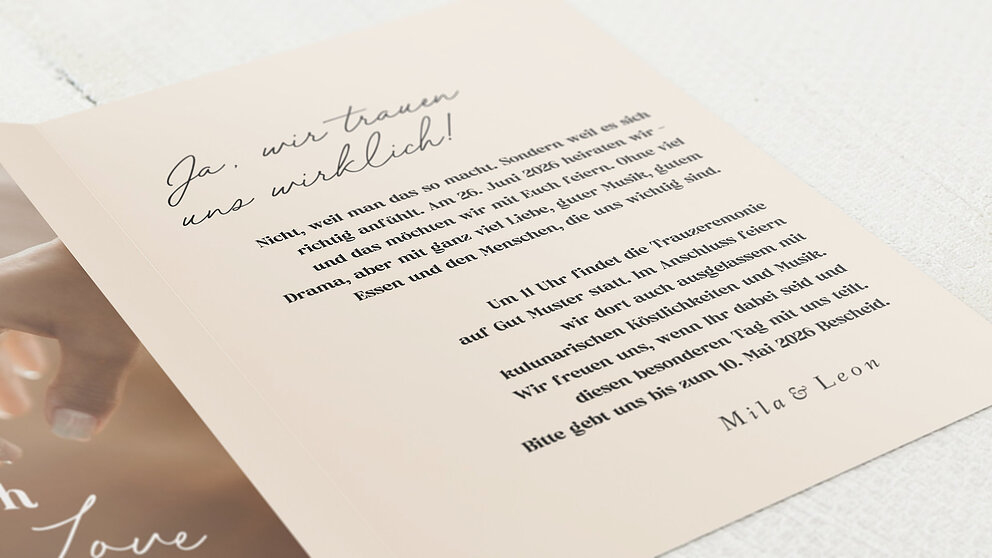 Ja, wir trauen
uns wirklich!
Nicht, weil man das so macht. Sondern weil es sich
richtig anfühlt. Am 26. Juni 2026 heiraten wir –
und das möchten wir mit Euch feiern. Ohne viel
Drama, aber mit ganz viel Liebe, guter Musik, gutem
Essen und den Menschen, die uns wichtig sind.
Um 11 Uhr findet die Trauzeremonie
auf Gut Muster statt. Im Anschluss feiern
wir dort auch ausgelassen mit
kulunarischen Köstlichkeiten und Musik.
Wir freuen uns, wenn Ihr dabei seid und
diesen besonderen Tag mit uns teilt.
Bitte gebt uns bis zum 10. Mai 2026 Bescheid.
Mila & Leon
h
Love